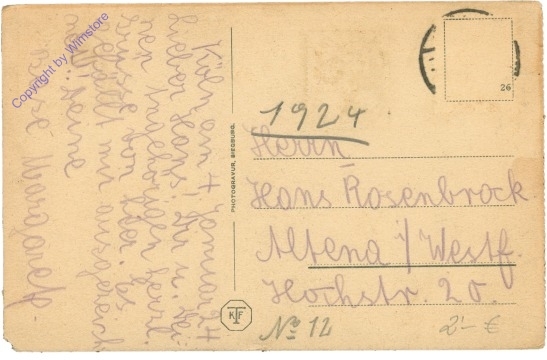 Köln, am 4. Januar 24
Lieber Hans! Dir u. Dei-
nen Angehörigen herzl.
Grüsse von hier. es
gefällt mir ausgezeich
net. Deine
Margarete
Copyright by Wimstore
PHOTOGRAVUR, SIEGBURG.
KTF
26
1924
Herrn
Hans Rosenbrock
Altena i/Westf.
Hochstr. 20.
No 12
2'- €